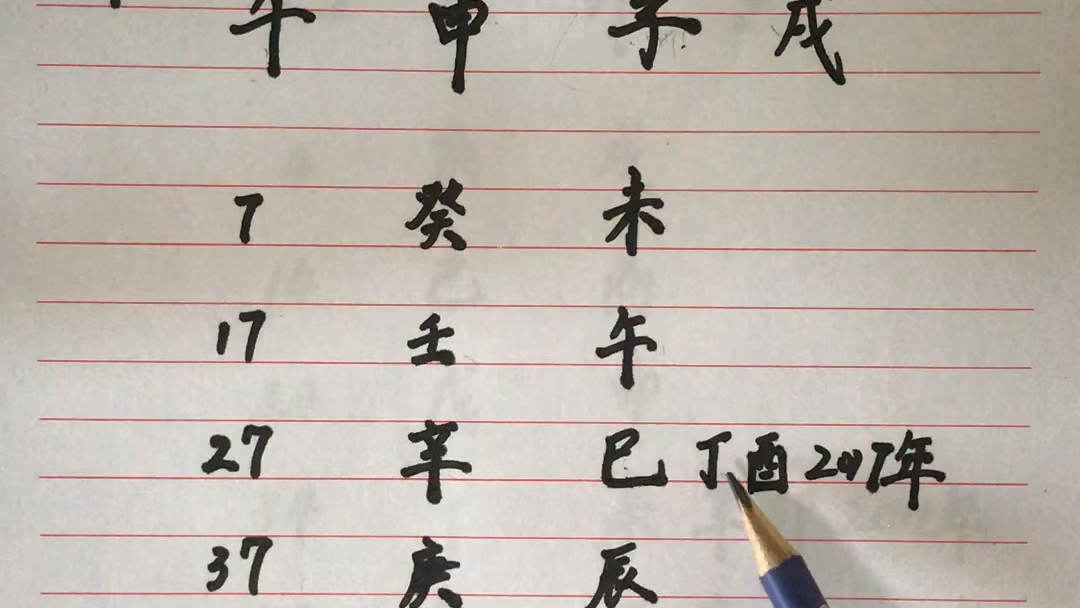 午 申 子 戌
7 癸 未
17 壬 午
27 辛 巳 丁酉 2017年
37 庚 辰